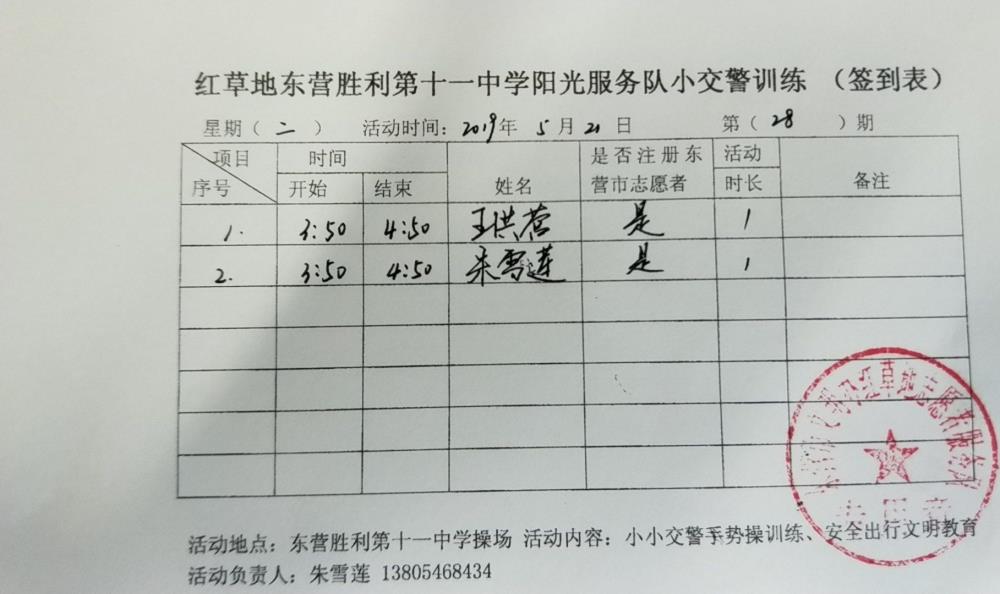 红草地东营胜利第十一中学阳光服务队小交警训练 （签到表）
星期（ 二 ） 活动时间：2019年 5月 21日 第（ 28 ）期
项目 时间 是否注册东 活动
序号 开始 结束 姓名 营市志愿者 时长 备注
1. 3:50 4:50 王洪营 是 1
2. 3:50 4:50 朱雪莲 是 1
红草地志愿
活动地点：东营胜利第十一中学操场 活动内容：小小交警手势操训练、安全出行文明教育
活动负责人：朱雪莲 13805468434